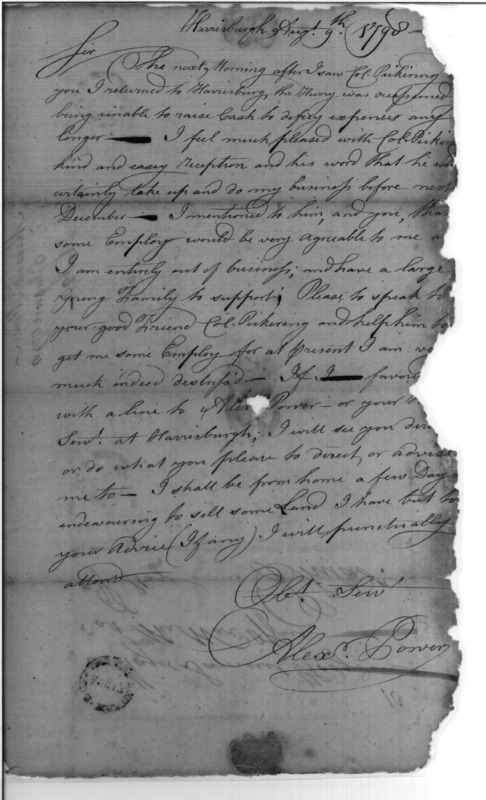 Harrisburgh Augt. 9th. 1798 —
Sir
The next Morning after I saw Col. Pickering
you I returned to Harrisburg, the Hurry was occasioned
being unable to raise Cash to defray expenses any
longer — I feel much pleased with Col. Picke
kind and easey reception and his word that he wou
certainly take up and do my business before next
December — I mentioned to him, and you, that
some Employ would be very agreable to me a
I am entirely out of business; and have a large
young Family to support; Please to speak to
your good Friend Col. Pickering and help him to
get me some Employ for at present I am ve
much indeed distress'd — If I favor
with a line to Alexr. Power — or your
Servt. at Harrisburgh; I will see you dire
or do what you please to direct, or advise
me to — I shall be from home a few Day
endeavouring to sell some Land I have but to
your Advice (If any) I will punctually
attend
Obt. Servt
Alexr. Power